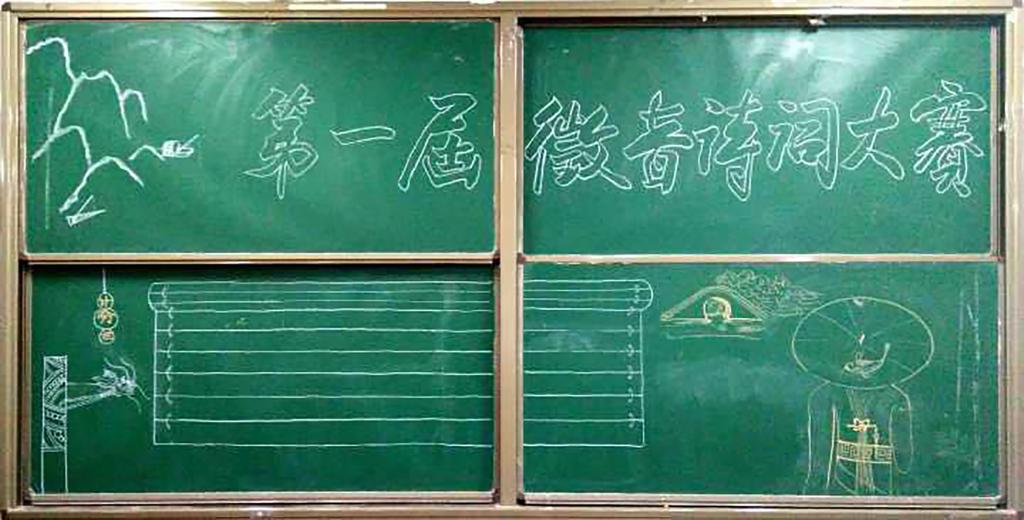 第一届徵音诗词大赛